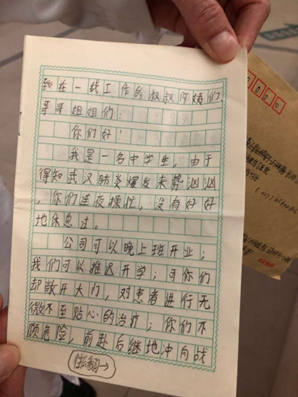 致在一线工作的叔叔阿姨们，
哥哥姐姐们：
你们好！
我是一名中学生，由于
得知武汉肺炎爆发来势汹汹，
你们连夜操忙，没有好好
地休息过。
公司可以晚上班开业；
我们可以推迟开学；可你们
却敞开大门，对患者进行无
微不至贴心的治疗；你们不
顾危险，前赴后继地冲向战